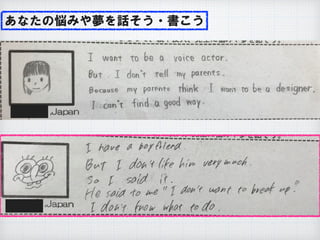 あなたの悩みや夢を話そう・書こう
I want to be a voice actor.
But I don't tell my parents.
Because my parents think I want to be a designer.
I can't find a good way.
Japan
I have a boyfriend
But I don't like him very much.
So I said it.
He said to me "I don't want to break up."
I don't know what to do.
Japan